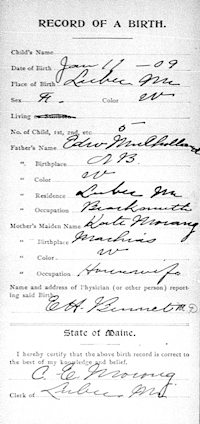 RECORD OF A BIRTH.
Child's Name
Date of Birth Jan 17 - 09
Place of Birth Lubec Me
Sex F. Color W
Living
No. of Child, 1st, 2nd, etc. 5
Father's Name Edw Mulholland
" Birthplace N B
" Color W
" Residence Lubec Me
" Occupation Blacksmith
Mother's Maiden Name Kate Morang
" Birthplace Machias
" Color W
" Occupation Housewife
Name and address of Physician (or other person) report-
ing said Birth
E H Bennet MD
State of Maine.
I hereby certify that the above birth record is correct to
the best of my knowledge and belief.
C. E. Morong
Clerk of Lubec, Me